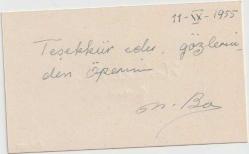 11-IX-1955
Teşekkür eder, gözlerin
den öperim